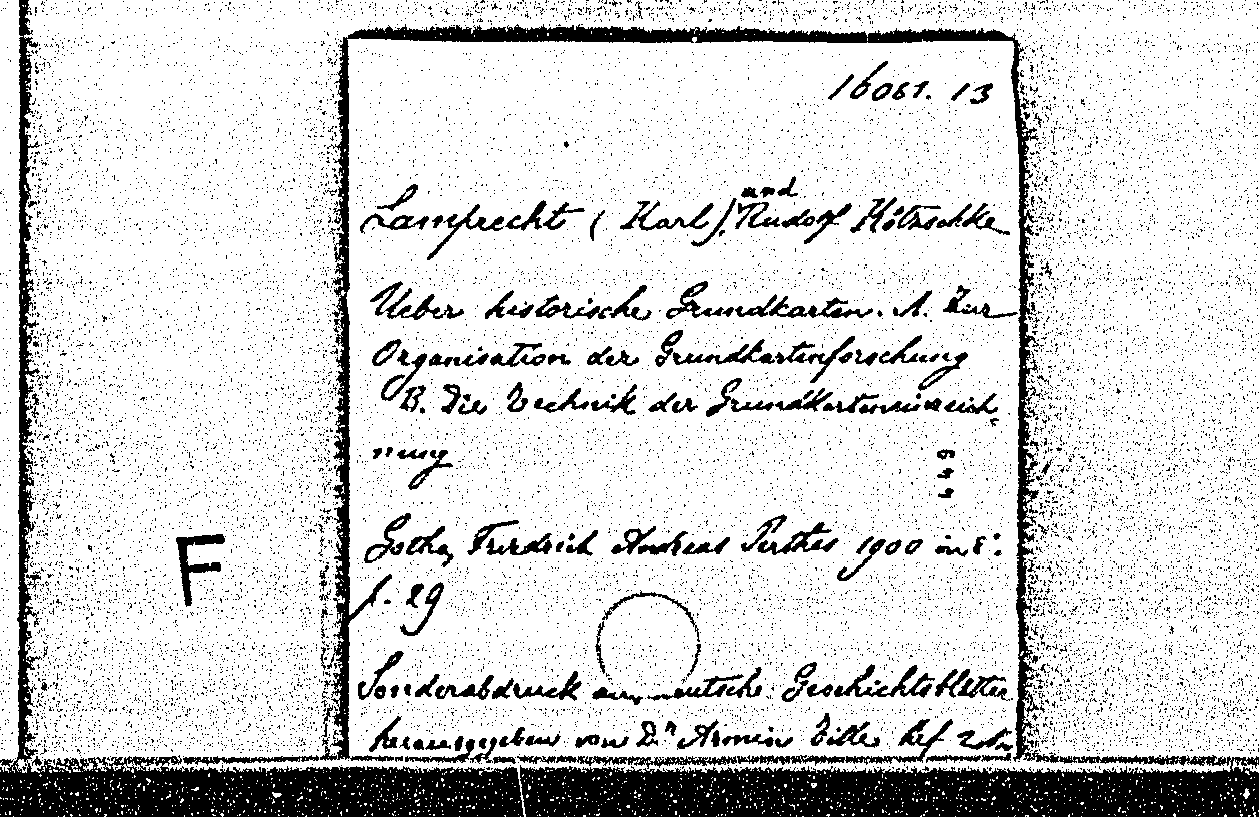 16061. 13
und
Lamprecht (Karl). Rudolf Kötzschke
Ueber historische Grundkarten. A. Zur
Organisation der Grundkartenforschung
B. Die Technik der Grundkarteneinzeich-
nung
Gotha, Friedrich Andreas Perthes 1900 in 8°.
p. 29
F
Sonderabdruck aus deutsche Geschichtsblätter
herausgegeben von Dr Armin Tille